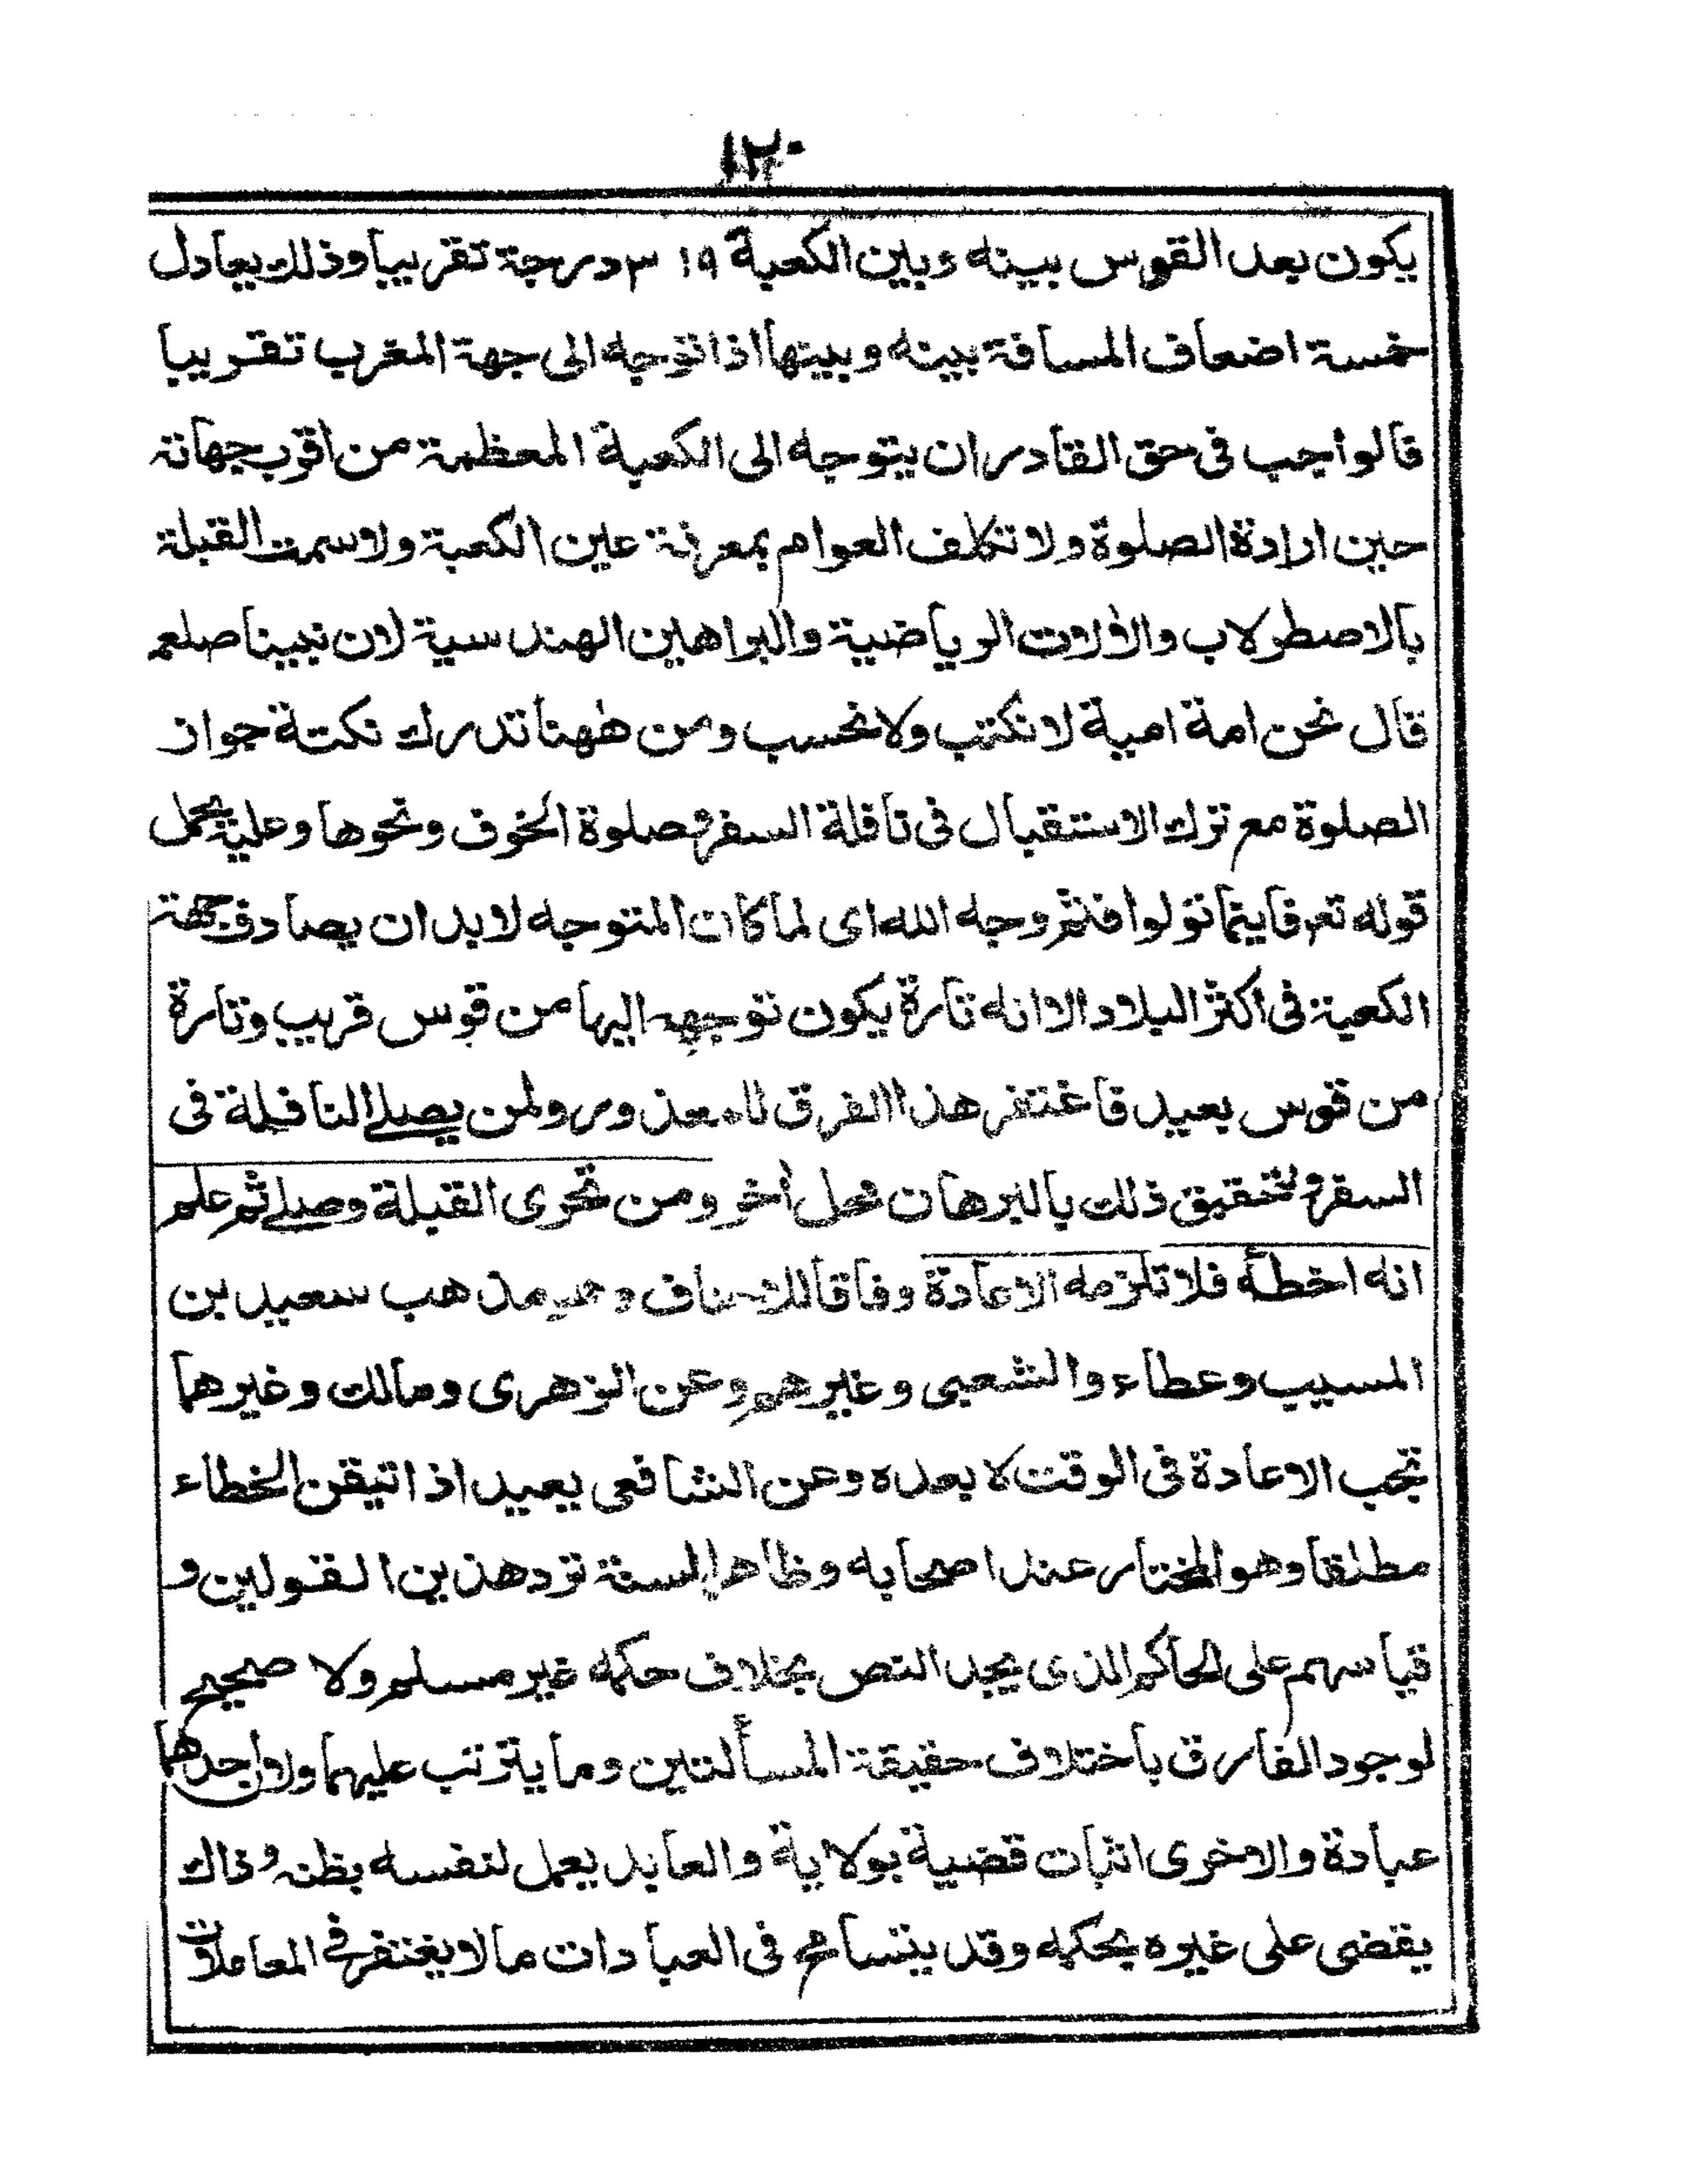 ١٢٠
يكون بعد القوس بينه وبين الكعبة ٣١٩ درجة تقريبا وذلك يعادل
خمسة اضعاف المسافة بينه وبينها اذا توجه الى جهة المغرب تقريبا
فالواجب فى حق القادر ان يتوجه الى الكعبة المعظمة من اقرب جهاته
حين ارادة الصلوة ولا تكلف العوام بمعرفة عين الكعبة ولا سمت القبلة
بالاصطرلاب والآلات الرياضية والبراهين الهندسية لان نبينا صلعم
قال نحن امة امية لا نكتب ولا نحسب ومن ههنا تدرك نكتة جواز
الصلوة مع ترك الاستقبال فى نافلة السفر وصلوة الخوف ونحوها وعليه يحمل
قوله تعم فاينما تولوا فثم وجه الله اى لما كان المتوجه لابد ان يصادف جهة
الكعبة فى اكثر البلاد الا انه تارة يكون توجهه اليها من قوس قريب وتارة
من قوس بعيد فاغتفر هذا الفرق للمعذور ولمن يصلے النافلة فى
السفر ولتحقيق ذلك بالبرهان محل أخر ومن تحرى القبلة وصلے ثم علم
انه اخطأه فلا تلزمه الاعادة وفاقا للاحناف وهو مذهب سعيد بن
المسيب وعطاء والشعبى وغيرهم وعن الزهرى ومالك وغيرهما
تجب الاعادة فى الوقت لا بعده وعن الشافعى يعيد اذا تيقن الخطاء
مطلقا وهو المختار عند اصحابه وظاهر السنة ترد هذين القولين و
قياسهم على الحاكم الذى يجد النص بخلاف حكمه غير مسلم ولا صحيح
لوجود الفارق باختلاف حقيقة المسألتين وما يترتب عليهما ولان احدهما
عبادة والاخرى اثبات قضية بولاية والعابد يعمل لنفسه بظنه وذاك
يقضى على غيره بحكمه وقد يتسامح فى العبادات مالا يغتفر فى المعاملات